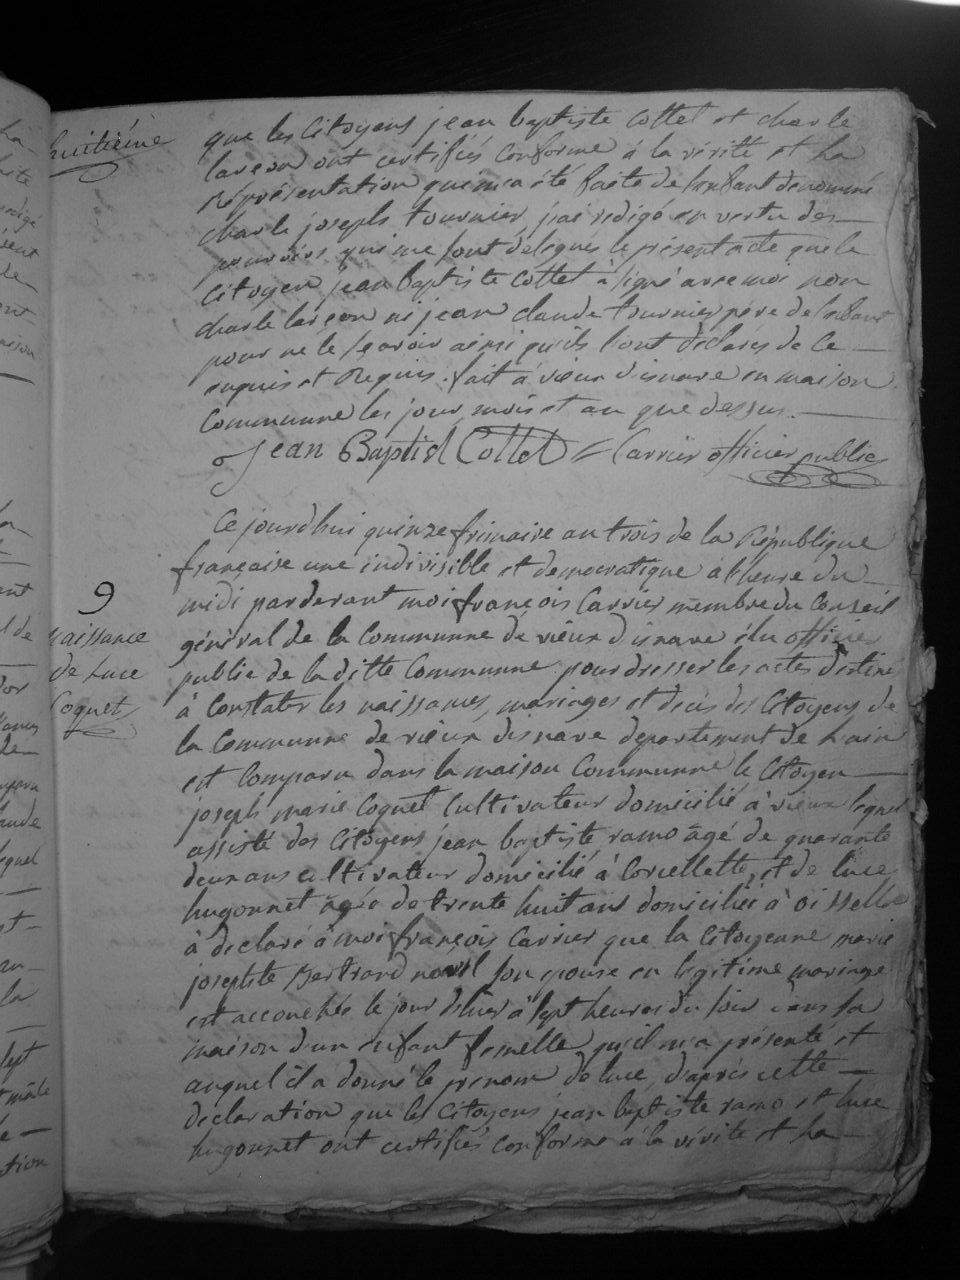 huitiéme
que les Citoyens jean baptiste Collet et charle
lareon ont certifiés conforme à la vérité et la
Représentation qui m'a été faite de l'enfant denommé
charle joseph tournier j'ai redigé en vertu des
pouvoirs qui me sont délegués le présent acte que le
Citoyen jean baptiste Collet à signé avec moi non
charle lareon ni jean claude tournier père de l'enfant
pour ne le sçavoir ainsi qu'ils l'ont déclarés de ce
enquis et Requis. fait à vieux d'isnave en maison
Communne les jour mois et an que dessus.
Jean Baptist Collet Carrier officier public
Ce jourd'hui quinze frimaire an trois de la République
française une indivisible et democratique à l'heure du
midi pardevant moi françois Carrier membre du Conseil
général de la Communne de vieux d'isnave élu officier
public de la ditte Communne pour dresser les actes destinés
à Constater les naissances, mariages et décés des Citoyens de
la Communne de vieux d'isnave departement de l'ain
est Comparu dans la maison Communne le Citoyen
joseph marie Coquet Cultivateur domicilié à vieux lequel
assisté des Citoyens jean baptiste ramo âgé de quarante
deux ans cultivateur domicilié à Corcellette, et de luce
hugonnet âgée de trente huit ans domiciliée à oisselle
à declaré à moi françois Carrier que la Citoyenne marie
josephte Bertrand son epouse en légitime mariage
est accouchée le jour d'hier à sept heures du soir dans sa
maison d'un enfant femelle qu'il m'a présenté et
auquel il a donné le prenom de luce, d'après cette
declaration que les Citoyens jean baptiste ramo et luce
hugonnet ont certifiés conforme à la vérité et la
9
naissance
de Luce
Coquet